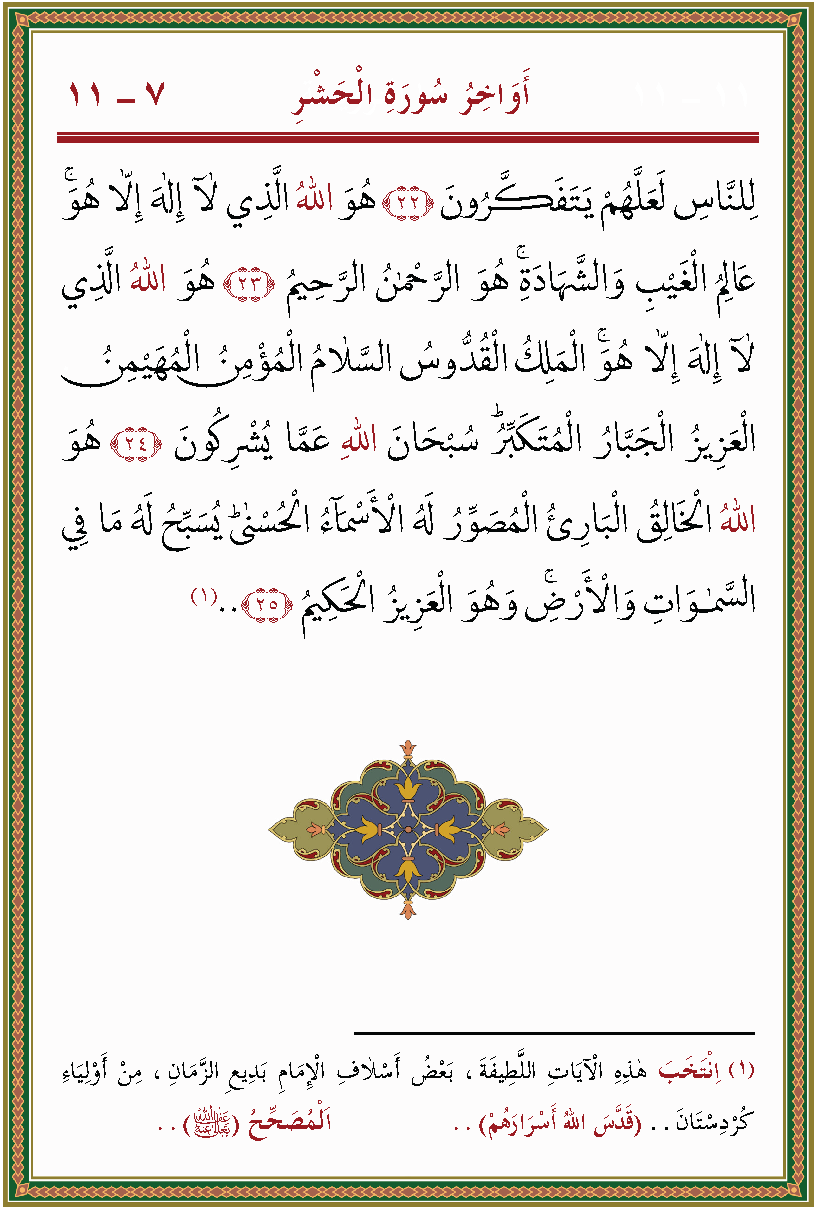 أَوَاخِرُ سُورَةِ الْحَشْرِ ٧ - ١١
لِلنَّاسِ لَعَلَّهُمْ يَتَفَكَّرُونَ ﴿٢٢﴾ هُوَ اللهُ الَّذِي لَآ إِلٰهَ إِلَّا هُوَۚ
عَالِمُ الْغَيْبِ وَالشَّهَادَةِۚ هُوَ الرَّحْمٰنُ الرَّحِيمُ ﴿٢٣﴾ هُوَ اللهُ الَّذِي
لَآ إِلٰهَ إِلَّا هُوَۚ الْمَلِكُ الْقُدُّوسُ السَّلَامُ الْمُؤْمِنُ الْمُهَيْمِنُ
الْعَزِيزُ الْجَبَّارُ الْمُتَكَبِّرُؕ سُبْحَانَ اللهِ عَمَّا يُشْرِكُونَ ﴿٢٤﴾ هُوَ
اللهُ الْخَالِقُ الْبَارِئُ الْمُصَوِّرُ لَهُ الْأَسْمَآءُ الْحُسْنٰىؕ يُسَبِّحُ لَهُ مَا فِي
السَّمٰوَاتِ وَالْأَرْضِۚ وَهُوَ الْعَزِيزُ الْحَكِيمُ ﴿٢٥﴾..(١)
(١) اِنْتَخَبَ هٰذِهِ الْآيَاتِ اللَّطِيفَةَ ، بَعْضُ أَسْلَافِ الْإِمَامِ بَدِيعِ الزَّمَانِ ، مِنْ أَوْلِيَاءِ
كُرْدِسْتَانَ . . (قَدَّسَ اللهُ أَسْرَارَهُمْ) . . اَلْمُصَحِّحُ () . .